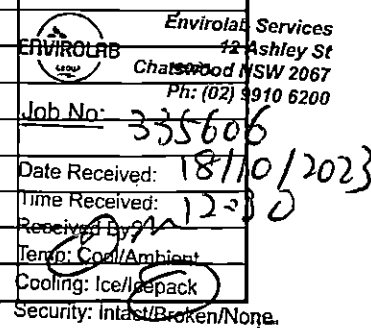 Envirolab Services
ENVIROLAB
12 Ashley St
GROUP
Chatswood NSW 2067
Ph: (02) 9910 6200
Job No: 335606
Date Received: 18/10/2023
Time Received: 12:30
Received By:
Temp: Cool/Ambient
Cooling: Ice/Icepack
Security: Intact/Broken/None